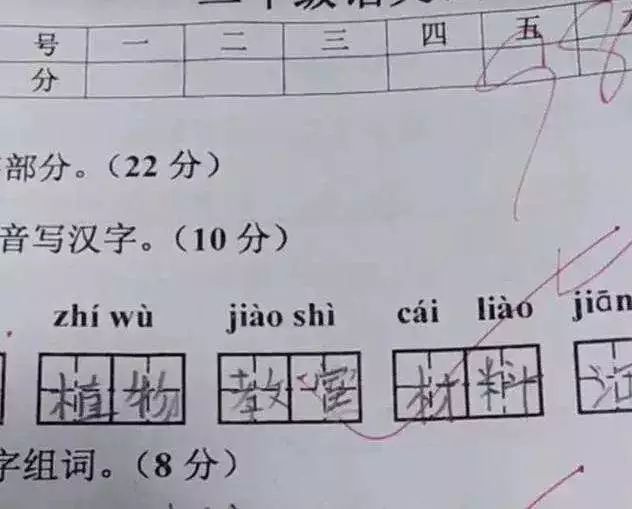 二年级语文
号 一 二 三 四 五
分
98
部分。（22 分）
音写汉字。（10 分）
zhí wù jiào shì cái liào jiān
植物 教室 材料 江
字组词。（8 分）